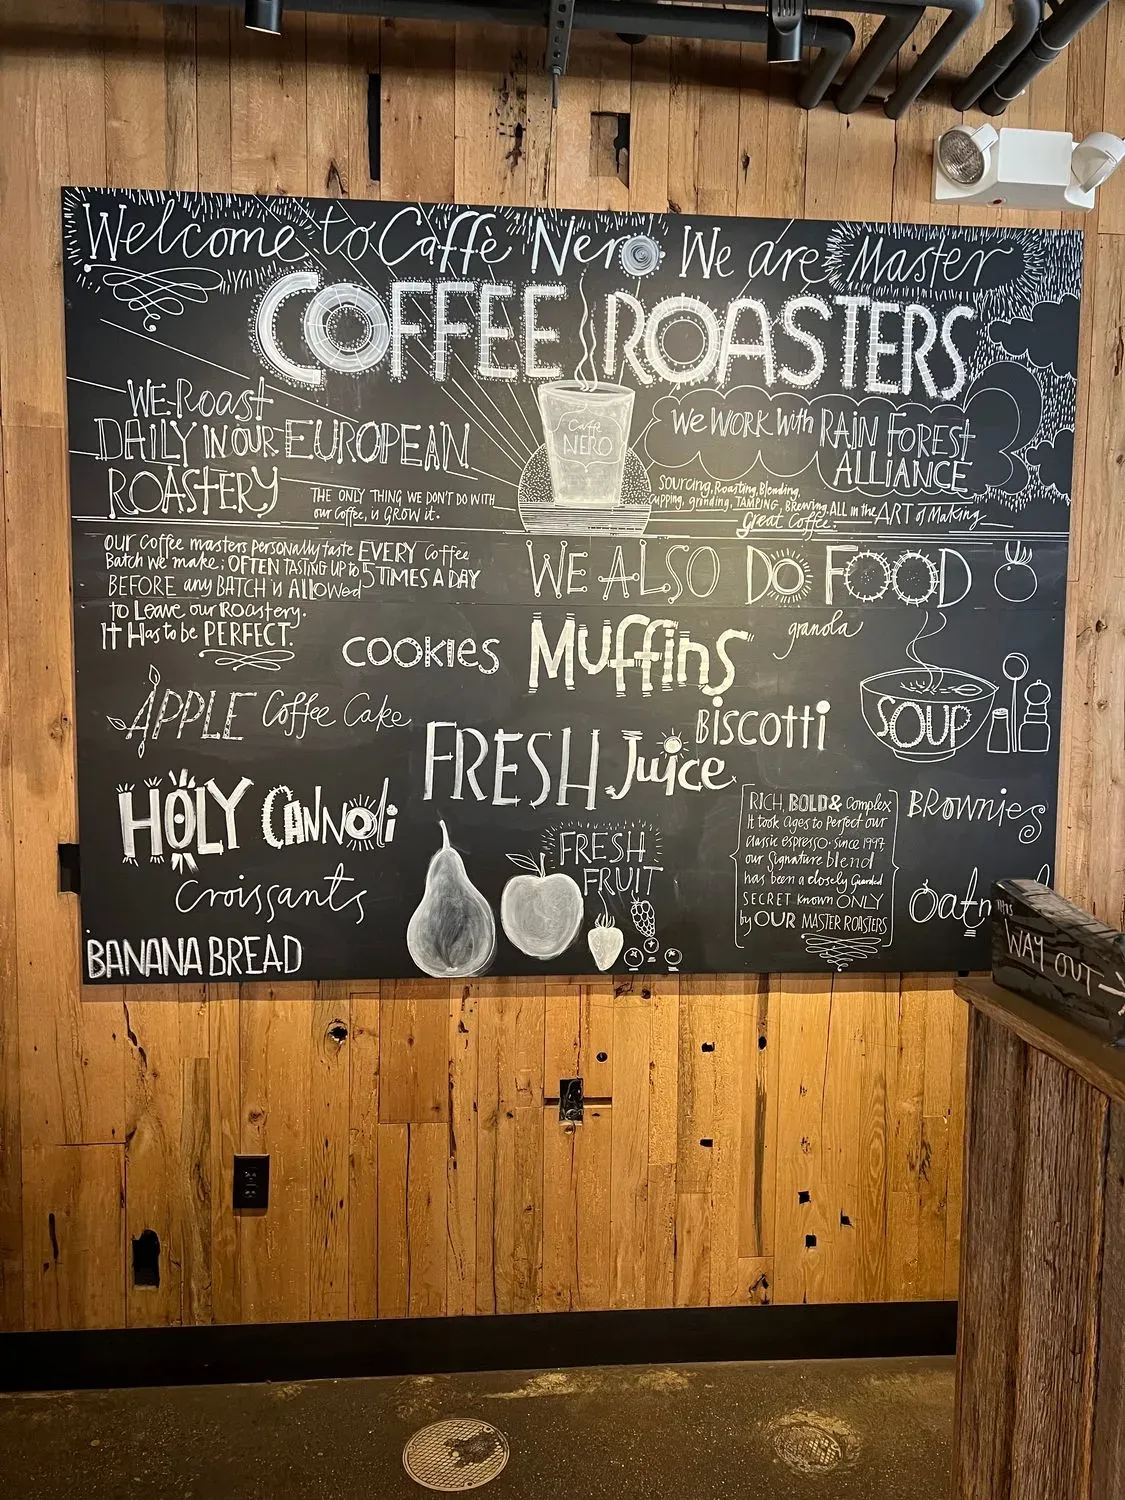 Welcome to Caffè Nero We are Master
COFFEE ROASTERS
WE Roast
DAILY IN OUR EUROPEAN
ROASTERY
THE ONLY THING WE DON'T DO WITH
our Coffee, is GROW it.
Caffè
NERO
We WORK with RAIN FOREST
ALLIANCE
Sourcing, Roasting, Blending,
cupping, grinding, TAMPING, Brewing. ALL in the ART of Making
Great Coffee.
our Coffee masters personally taste EVERY Coffee
Batch we make; OFTEN TASTING UP to 5 TIMES A DAY
BEFORE any BATCH is Allowed
to Leave our Roastery.
IT Has to be PERFECT.
WE ALSO DO FOOD
granola
COOKIES Muffins
APPLE Coffee Cake
Biscotti
SOUP
FRESH Juice
HOLY CANNOli
Croissants
BANANA BREAD
FRESH
FRUIT
RICH, BOLD & Complex
It took ages to Perfect our
classic espresso. since 1997
our Signature blend
has been a closely Guarded
SECRET known ONLY
by OUR MASTER ROASTERS
BROWNIES
WAY OUT